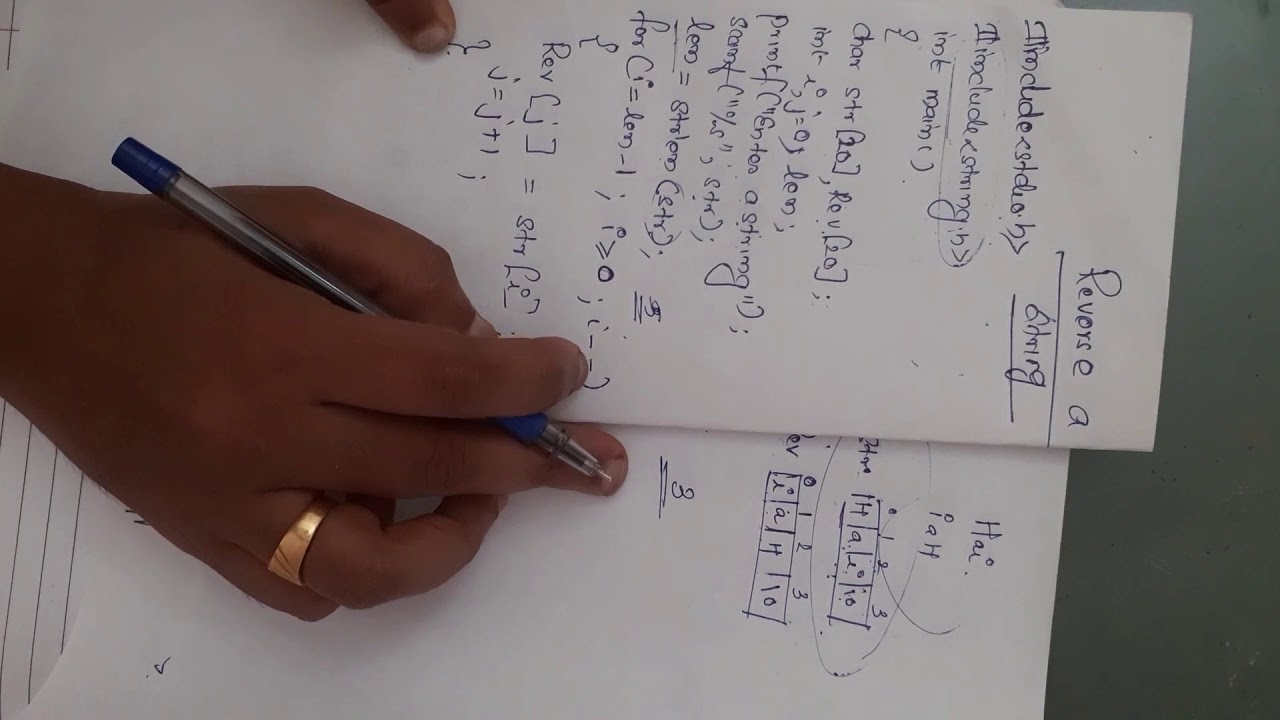 Reverse a
String
#include<stdio.h>
#include<string.h>
int main()
{
char str[20], Rev[20];
int i, j=0, len;
printf("Enter a string");
scanf("%s", str);
len = strlen(str);
3
for(i=len-1; i≥0; i--)
{
Rev[j] = str[i];
j=j+1;
}
Hai
iaH
0 1 2 3
H a i \0
0 1 2 3
i a H \0
3